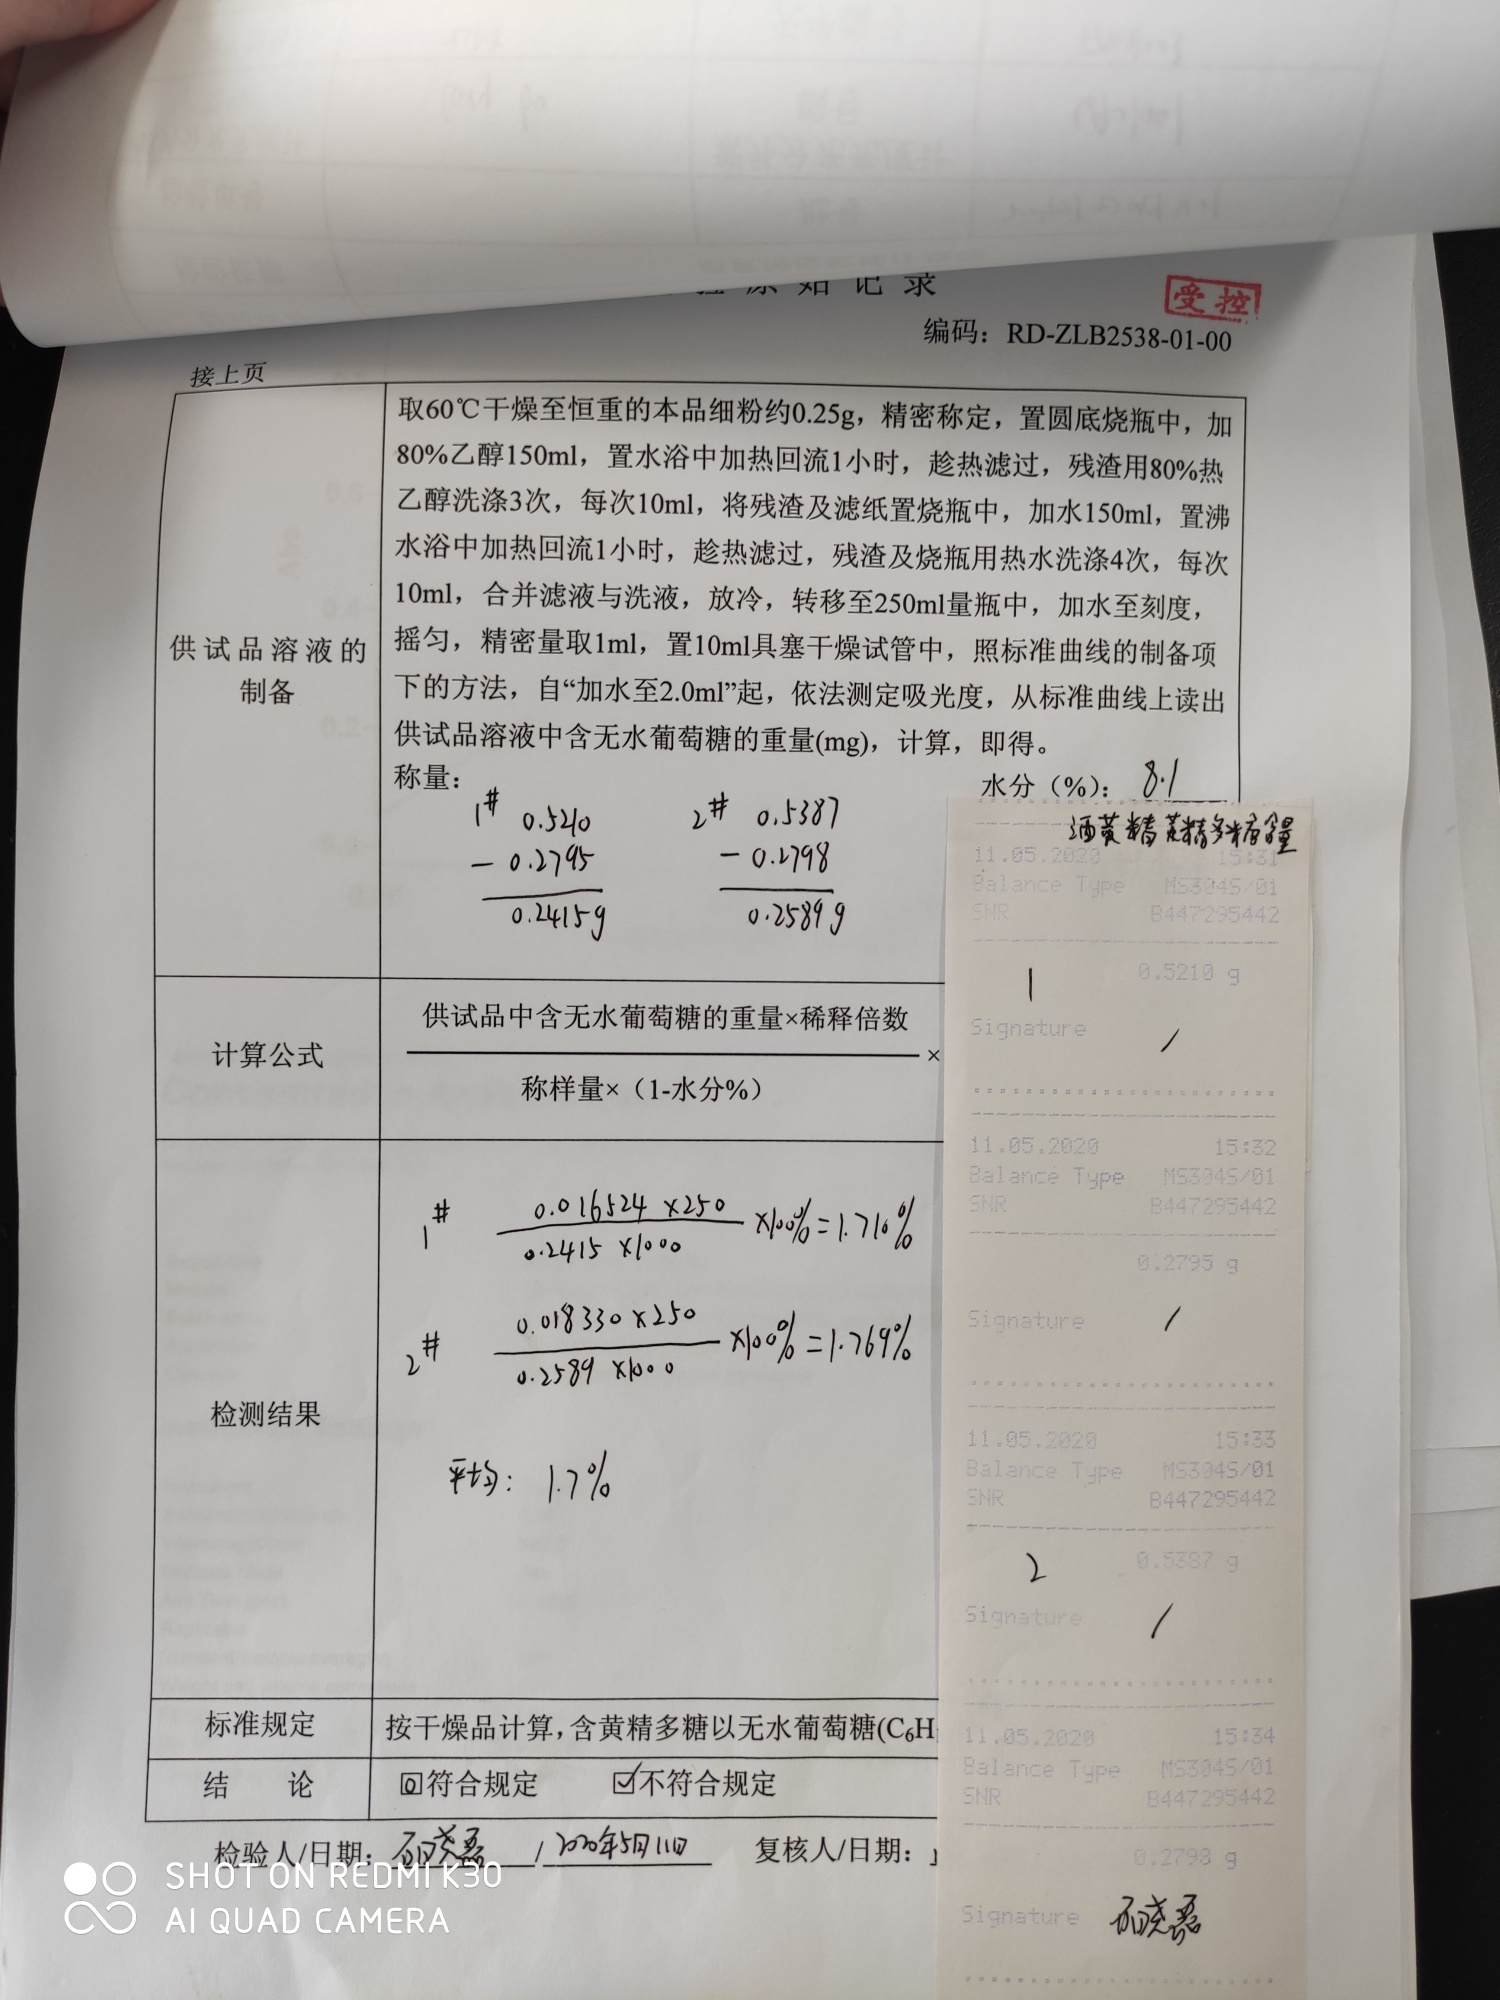 原始记录
受控
编码：RD-ZLB2538-01-00
接上页
供试品溶液的
制备
取60℃干燥至恒重的本品细粉约0.25g，精密称定，置圆底烧瓶中，加
80%乙醇150ml，置水浴中加热回流1小时，趁热滤过，残渣用80%热
乙醇洗涤3次，每次10ml，将残渣及滤纸置烧瓶中，加水150ml，置沸
水浴中加热回流1小时，趁热滤过，残渣及烧瓶用热水洗涤4次，每次
10ml，合并滤液与洗液，放冷，转移至250ml量瓶中，加水至刻度，
摇匀，精密量取1ml，置10ml具塞干燥试管中，照标准曲线的制备项
下的方法，自“加水至2.0ml”起，依法测定吸光度，从标准曲线上读出
供试品溶液中含无水葡萄糖的重量(mg)，计算，即得。
称量：
水分（%）：8.1
1# 0.5210
- 0.2795
0.2415g
2# 0.5387
- 0.2798
0.2589g
计算公式
供试品中含无水葡萄糖的重量×稀释倍数
×
称样量×（1-水分%）
检测结果
1# 0.016524×250
×100%=1.710%
0.2415×1000
2# 0.018330×250
×100%=1.769%
0.2589×1000
平均：1.7%
标准规定
按干燥品计算，含黄精多糖以无水葡萄糖(C6H
结 论
符合规定 不符合规定
检验人/日期： / 2020年5月11日 复核人/日期：
酒黄精黄精多糖含量
11.05.2020 15:31
Balance Type MS304S/01
SNR B447295442
1 0.5210 g
Signature /
11.05.2020 15:32
Balance Type MS304S/01
SNR B447295442
0.2795 g
Signature /
11.05.2020 15:33
Balance Type MS304S/01
SNR B447295442
2 0.5387 g
Signature /
11.05.2020 15:34
Balance Type MS304S/01
SNR B447295442
0.2798 g
Signature
SHOT ON REDMI K30
AI QUAD CAMERA